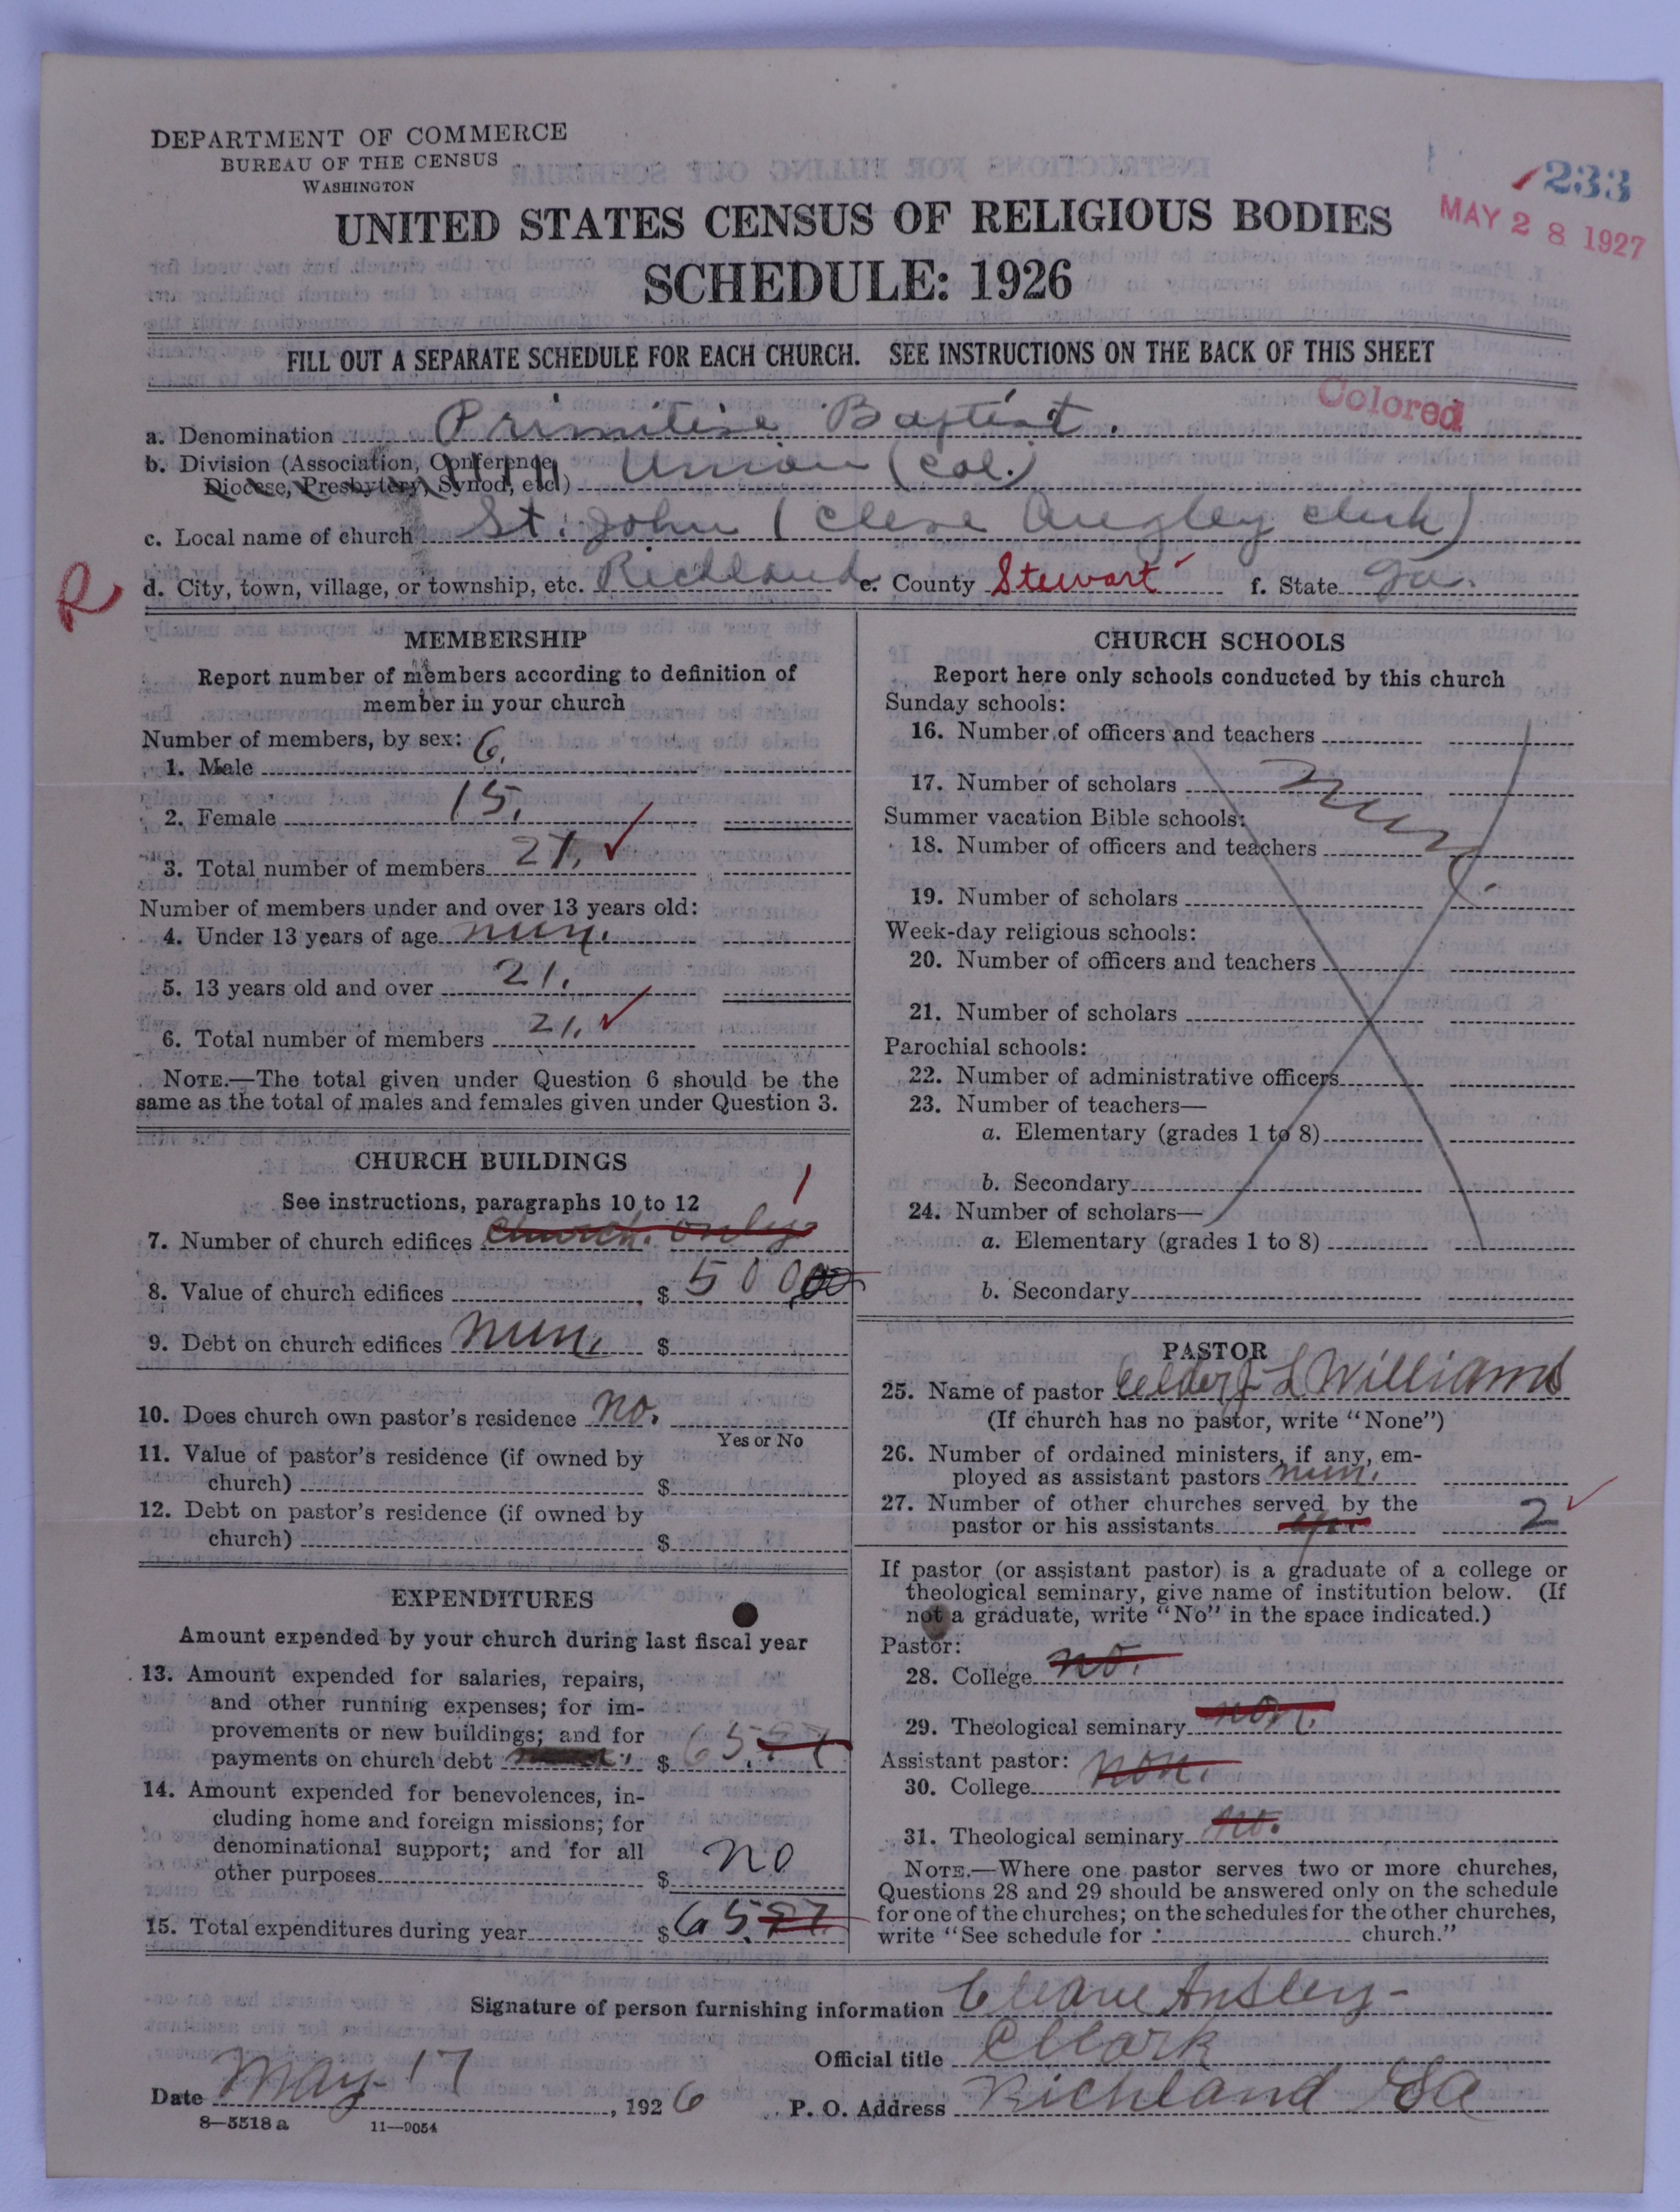 DEPARTMENT OF COMMERCE
BUREAU OF THE CENSUS
WASHINGTON
UNITED STATES CENSUS OF RELIGIOUS BODIES
SCHEDULE: 1926
233
MAY 28 1927
FILL OUT A SEPARATE SCHEDULE FOR EACH CHURCH. SEE INSTRUCTIONS ON THE BACK OF THIS SHEET
Colored
a. Denomination Primitive Baptist.
b. Division (Association, Conference, Union (Col.)
Diocese, Presbytery, Synod, etc.)
c. Local name of church St. John (Cleve Angley clerk)
R
d. City, town, village, or township, etc. Richland e. County Stewart f. State Ga.
MEMBERSHIP
Report number of members according to definition of
member in your church
Number of members, by sex:
1. Male 6.
2. Female 15.
3. Total number of members 21.
Number of members under and over 13 years old:
4. Under 13 years of age nun.
5. 13 years old and over 21.
6. Total number of members 21.
NOTE.—The total given under Question 6 should be the
same as the total of males and females given under Question 3.
CHURCH BUILDINGS
See instructions, paragraphs 10 to 12
7. Number of church edifices church. only 1
8. Value of church edifices $ 500 00
9. Debt on church edifices nun. $
10. Does church own pastor's residence no.
Yes or No
11. Value of pastor's residence (if owned by
church) $
12. Debt on pastor's residence (if owned by
church) $
EXPENDITURES
Amount expended by your church during last fiscal year
13. Amount expended for salaries, repairs,
and other running expenses; for im-
provements or new buildings; and for
payments on church debt $ 65.
14. Amount expended for benevolences, in-
cluding home and foreign missions; for
denominational support; and for all
other purposes $ no
15. Total expenditures during year $ 65.
CHURCH SCHOOLS
Report here only schools conducted by this church
Sunday schools:
16. Number of officers and teachers
17. Number of scholars
Summer vacation Bible schools:
18. Number of officers and teachers
19. Number of scholars
Week-day religious schools:
20. Number of officers and teachers
21. Number of scholars
Parochial schools:
22. Number of administrative officers
23. Number of teachers—
a. Elementary (grades 1 to 8)
b. Secondary
24. Number of scholars—
a. Elementary (grades 1 to 8)
b. Secondary
PASTOR
25. Name of pastor Celder J L Williams
(If church has no pastor, write "None")
26. Number of ordained ministers, if any, em-
ployed as assistant pastors nun.
27. Number of other churches served by the
pastor or his assistants 2
If pastor (or assistant pastor) is a graduate of a college or
theological seminary, give name of institution below. (If
not a graduate, write "No" in the space indicated.)
Pastor:
28. College no.
29. Theological seminary non.
Assistant pastor:
30. College non.
31. Theological seminary no.
NOTE.—Where one pastor serves two or more churches,
Questions 28 and 29 should be answered only on the schedule
for one of the churches; on the schedules for the other churches,
write "See schedule for church."
Signature of person furnishing information Cleave Ansley
Official title Cllark
Date May 17, 1926 P. O. Address Richland Ga
8—5518 a 11—9054